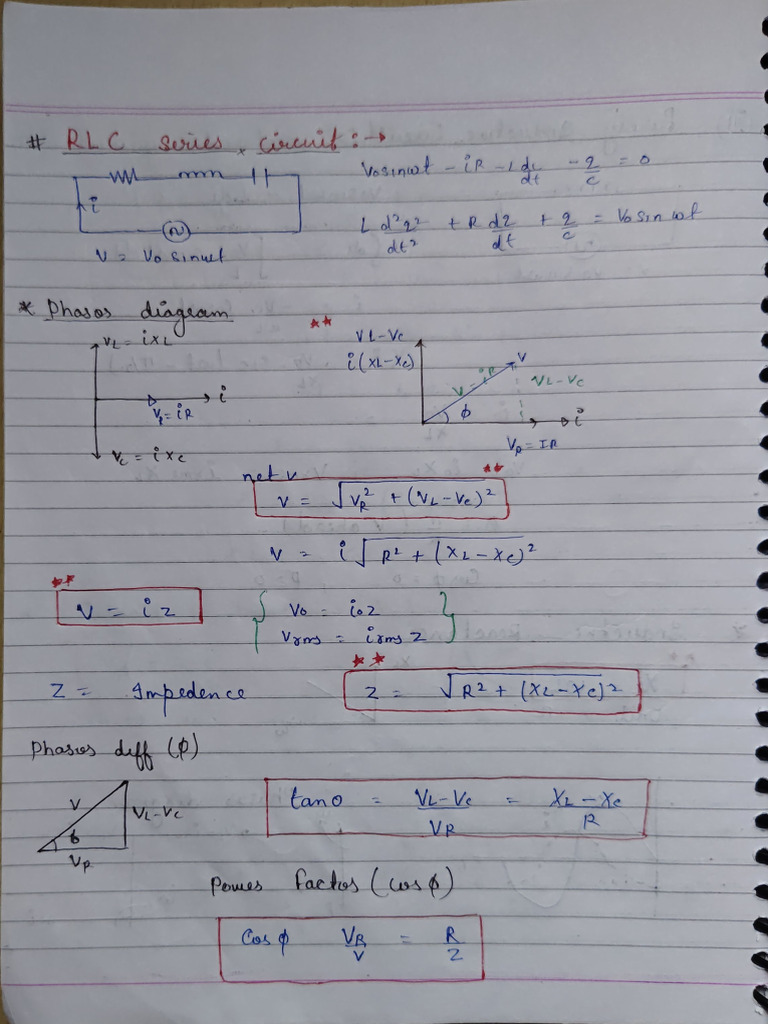 # RLC series circuit :→
V₀sinωt - iR - L di/dt - q/c = 0
i
L d²q²/dt² + R dq/dt + q/c = V₀ sin ωt
V = V₀ sinωt
* Phasor diagram
**
V_L = iX_L
i
V_R = iR
V_C = iX_C
V_L - V_C
i(X_L - X_C)
V
V = iR
V_L - V_C
ϕ
i
V_R = IR
net V
**
V = √(V_R² + (V_L - V_C)²)
V = i √(R² + (X_L - X_C)²)
**
V = iz
{ V₀ = i₀z }
{ Vrms = irms z }
**
Z = Impedence
Z = √(R² + (X_L - X_C)²)
Phasor diff (ϕ)
V
V_L - V_C
ϕ
V_R
tanθ = (V_L - V_C)/V_R = (X_L - X_C)/R
Power factor (cosϕ)
Cosϕ V_R/V = R/Z